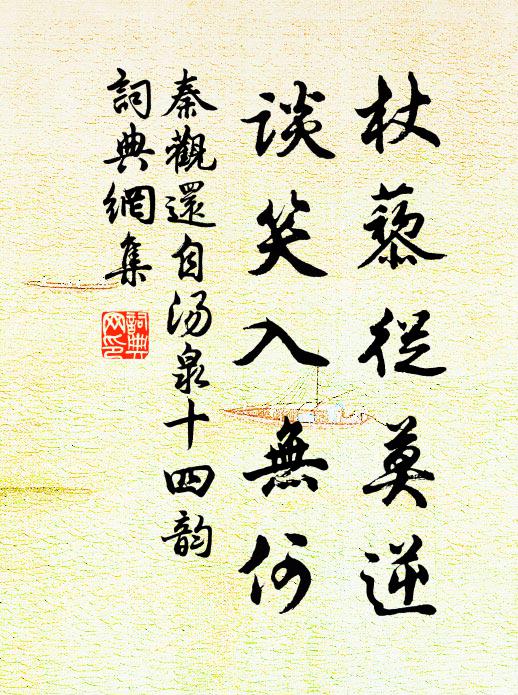 杖藜從莫逆
談笑入無何
秦觀還自湯泉十四韵
詞典網集
詞典网印